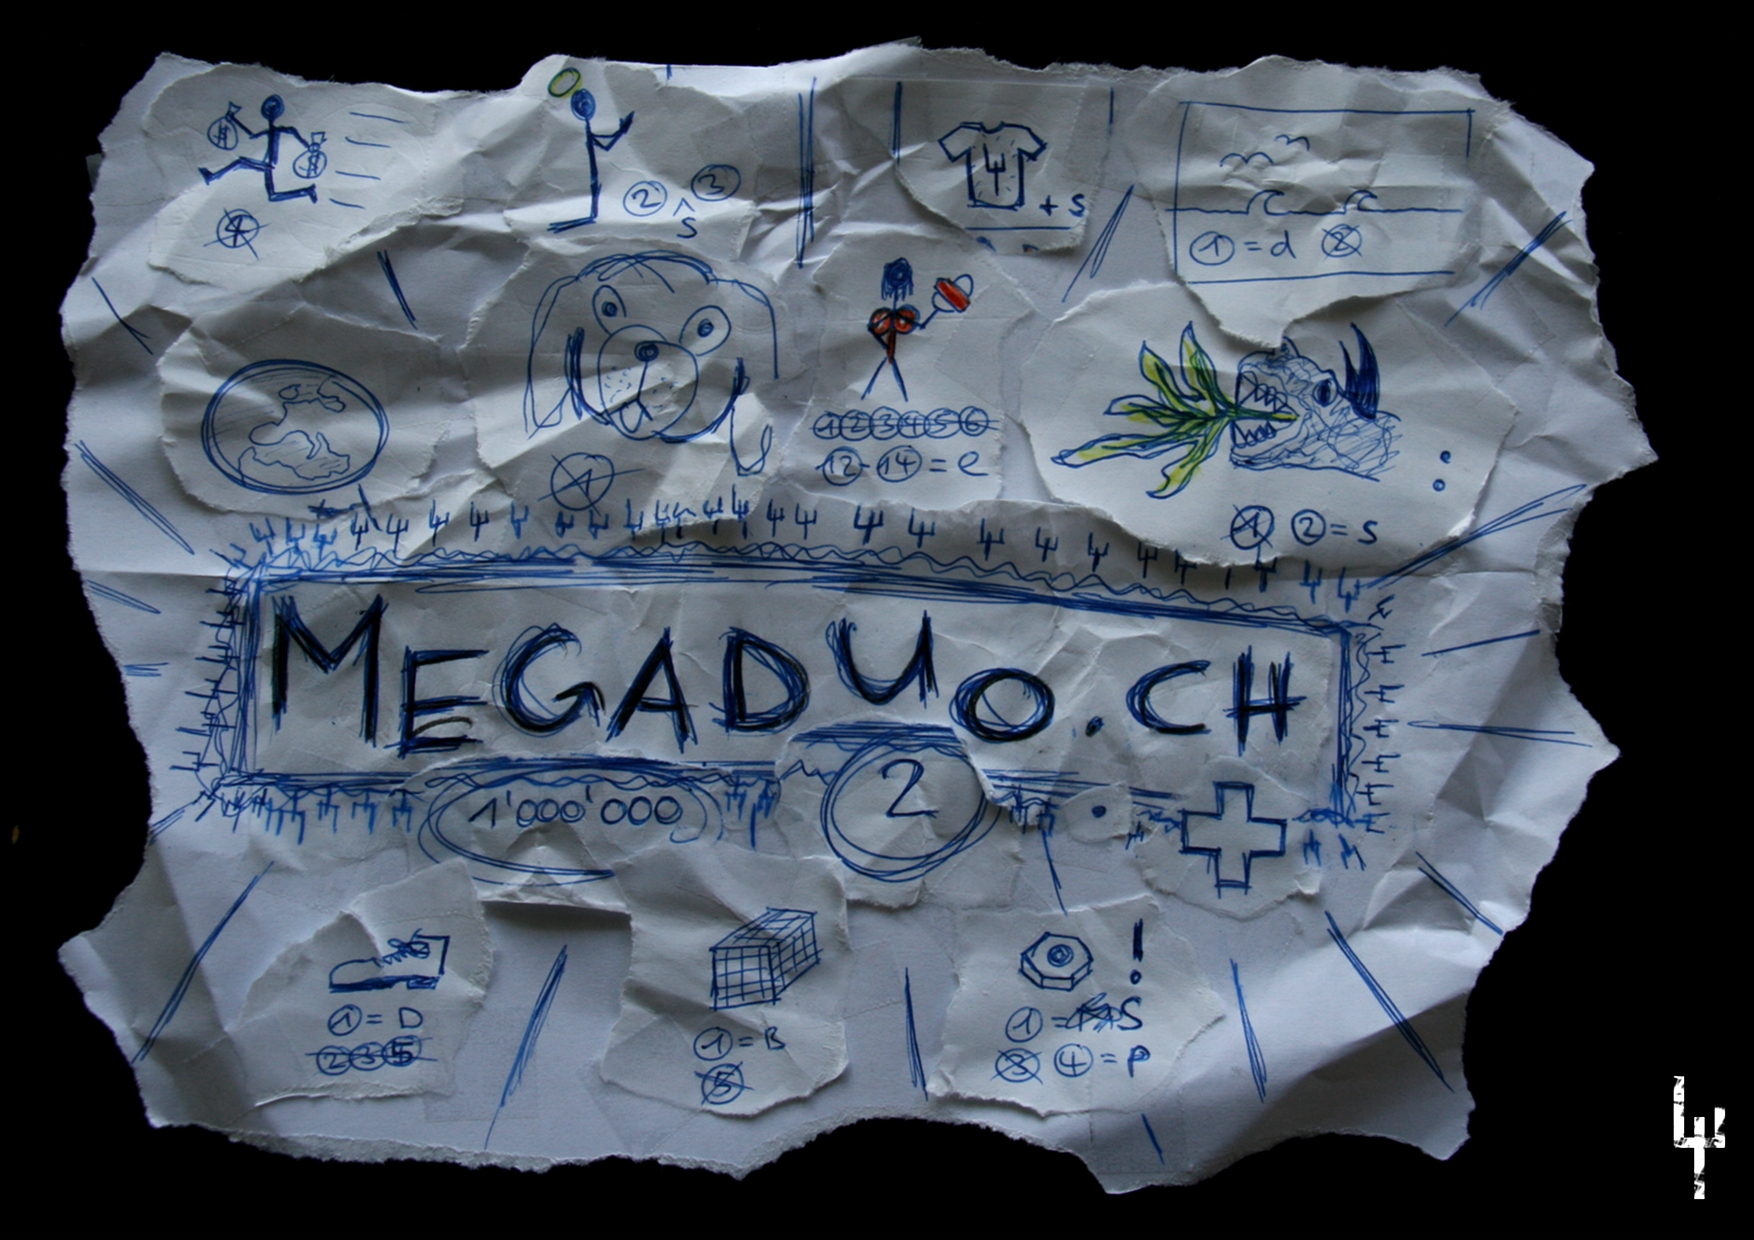 $ $
4
2 ^ 3
s
+ s
1 = d 2
1 2 3 4 5 6
12-14 = e
1
:
1 2 = s
MEGADUO.CH
1'000'000
2
!
1 = D
2 3 5
1 = B
5
1 = S
3 4 = P